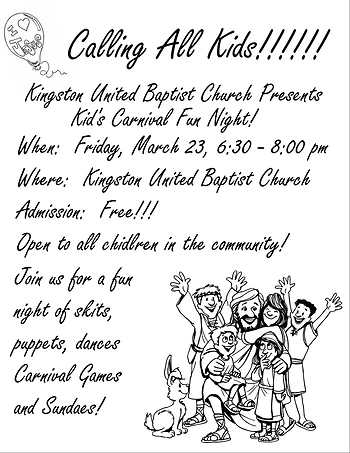 Calling All Kids!!!!!!
Kingston United Baptist Church Presents
Kid's Carnival Fun Night!
When: Friday, March 23, 6:30 - 8:00 pm
Where: Kingston United Baptist Church
Admission: Free!!!
Open to all chidlren in the community!
Join us for a fun
night of skits,
puppets, dances
Carnival Games
and Sundaes!